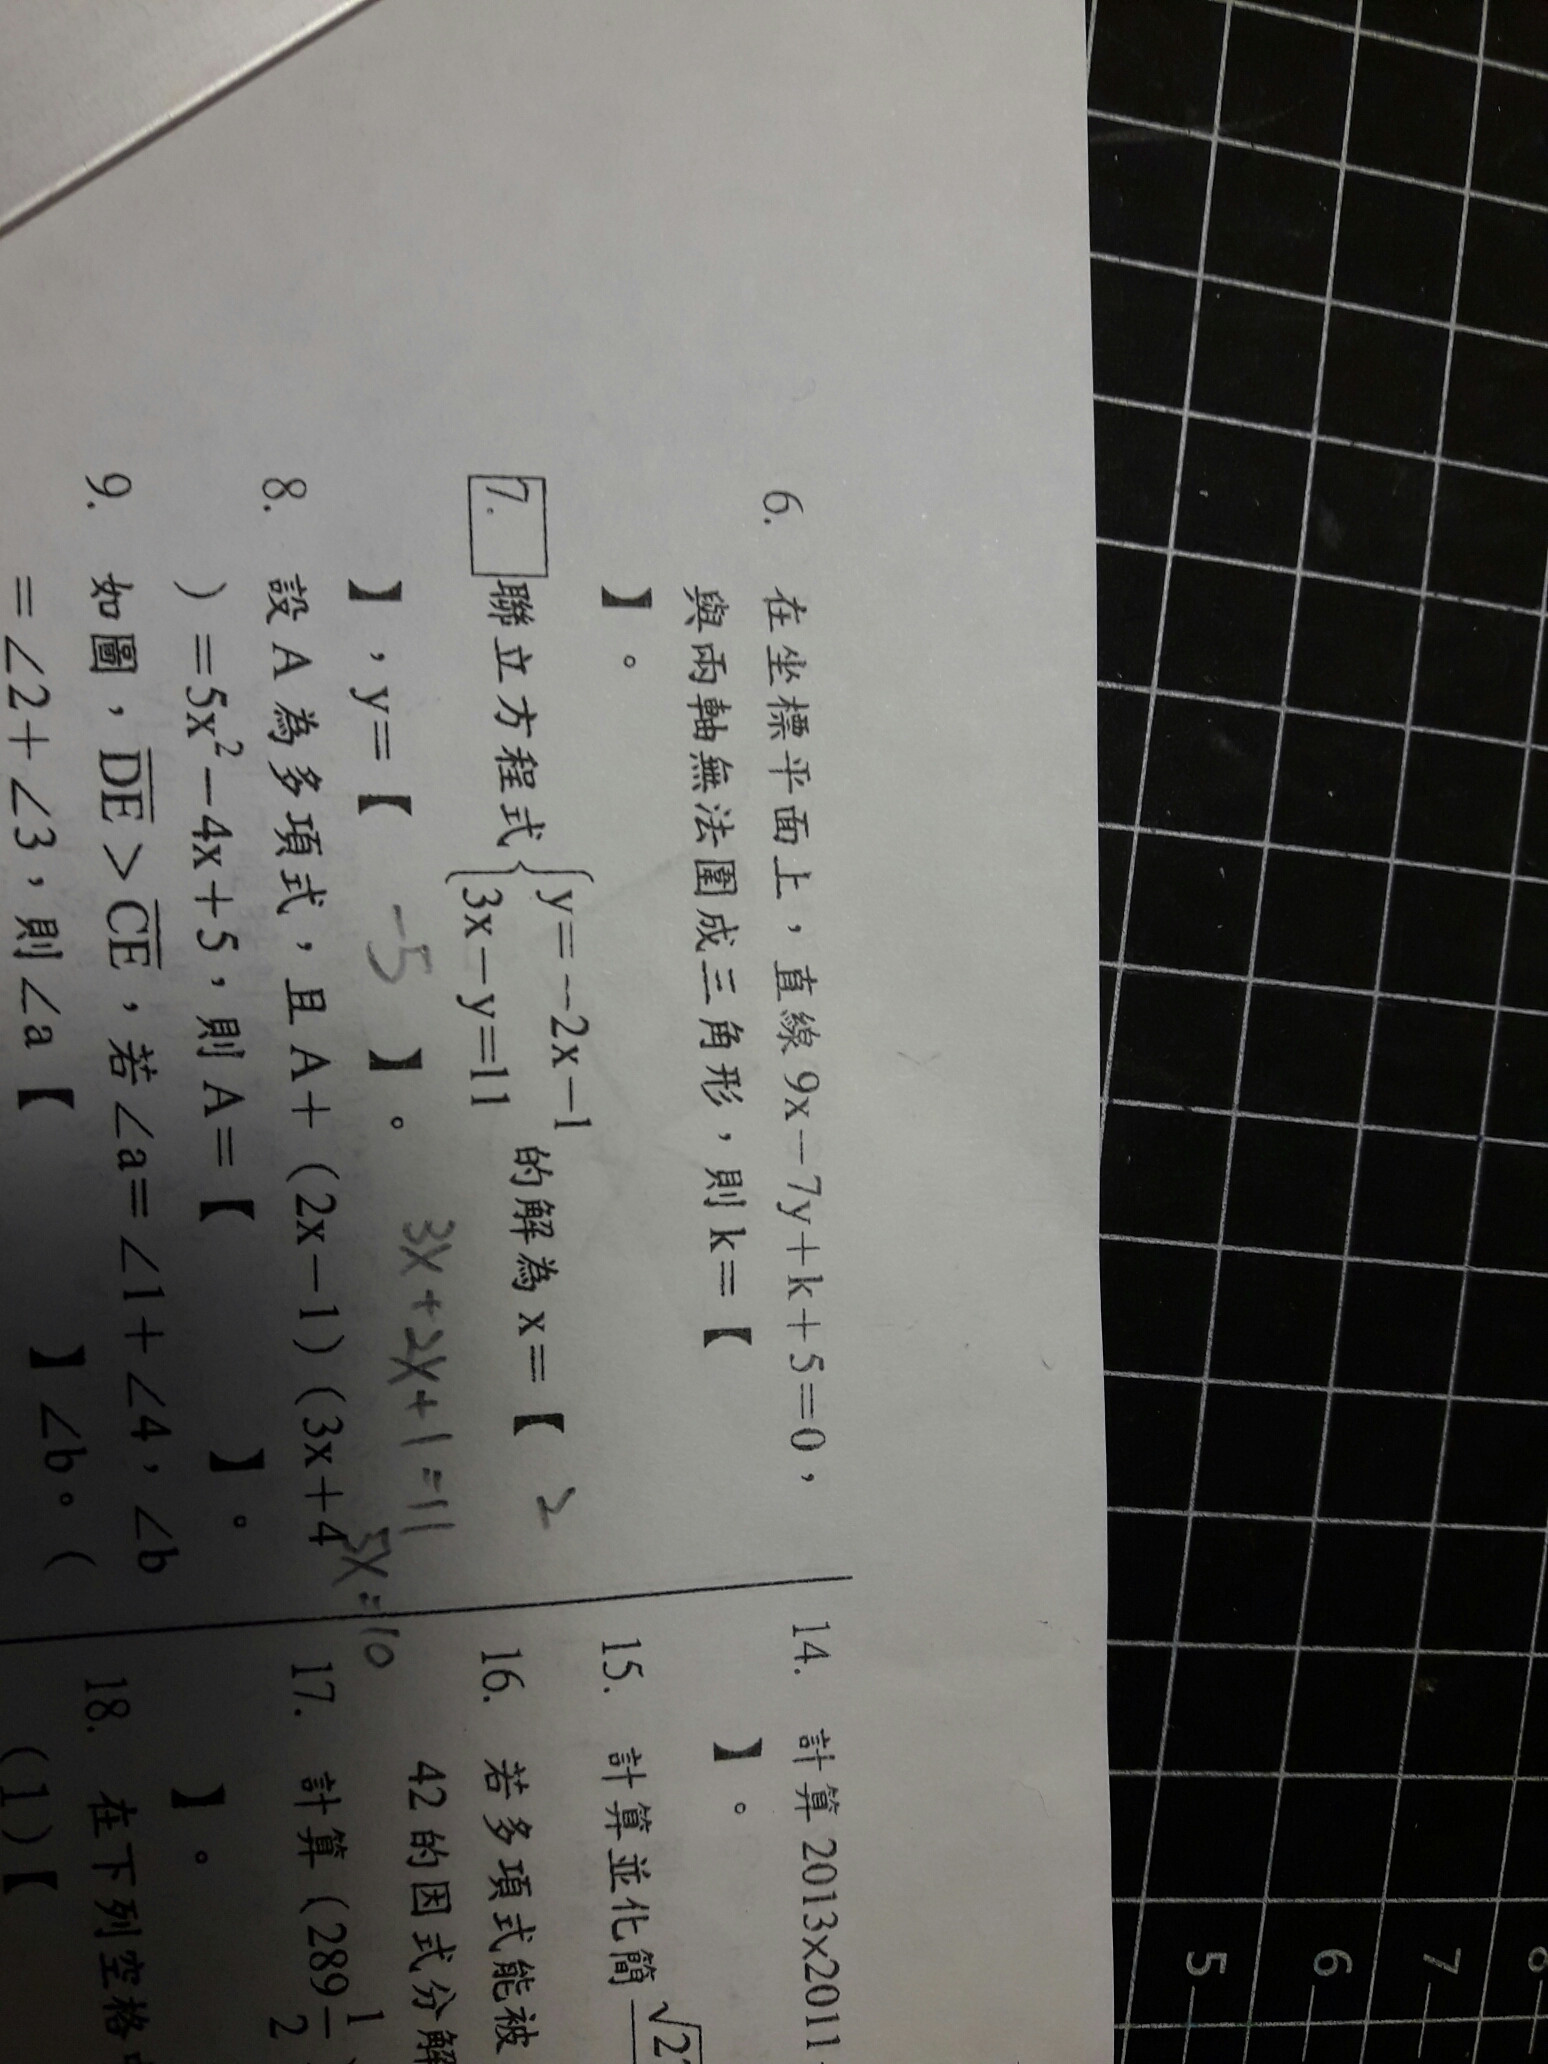 6. 在坐標平面上，直線 9x－7y＋k＋5＝0，
與兩軸無法圍成三角形，則 k＝【
】。
7. 聯立方程式{y＝－2x－1
3x－y＝11 的解為 x＝【 2
】，y＝【 -5 】。
3X+2X+1=11
5X=10
8. 設 A 為多項式，且 A＋（2x－1）（3x＋4
）＝5x²－4x＋5，則 A＝【 】。
9. 如圖，DE＞CE，若∠a＝∠1＋∠4，∠b
＝∠2＋∠3，則∠a【 】∠b。（
14. 計算 2013×2011
】。
15. 計算並化簡 √2
16. 若多項式能被
42 的因式分解
17. 計算（289 1/2
】。
18. 在下列空格
(1)【
5
6
7